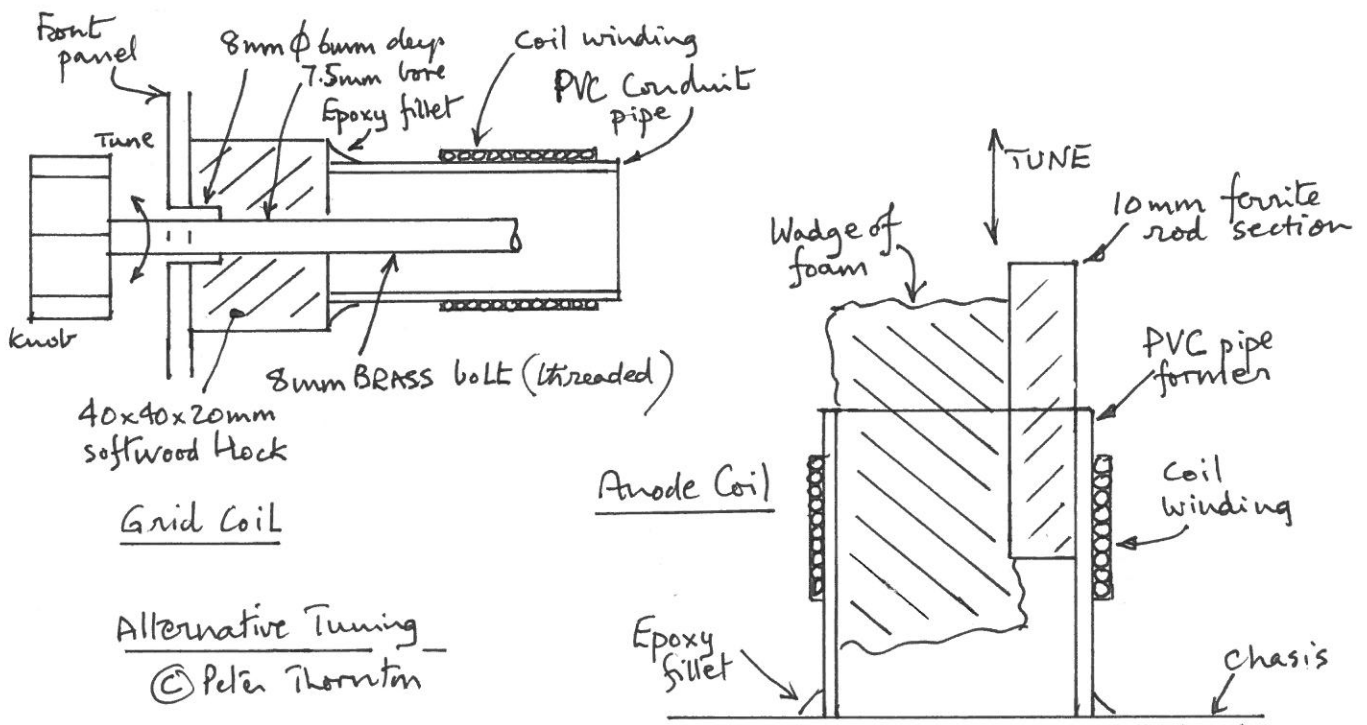 Front
panel
8mm ϕ 6mm deep
7.5mm bore
Epoxy fillet
Coil winding
PVC Conduit
pipe
Tune
knob
8mm BRASS bolt (threaded)
40x40x20mm
softwood block
Grid Coil
Alternative Tuning
© Peter Thornton
TUNE
10mm ferrite
rod section
Wadge of
foam
PVC pipe
former
Anode Coil
Coil
winding
Epoxy
fillet
Chasis